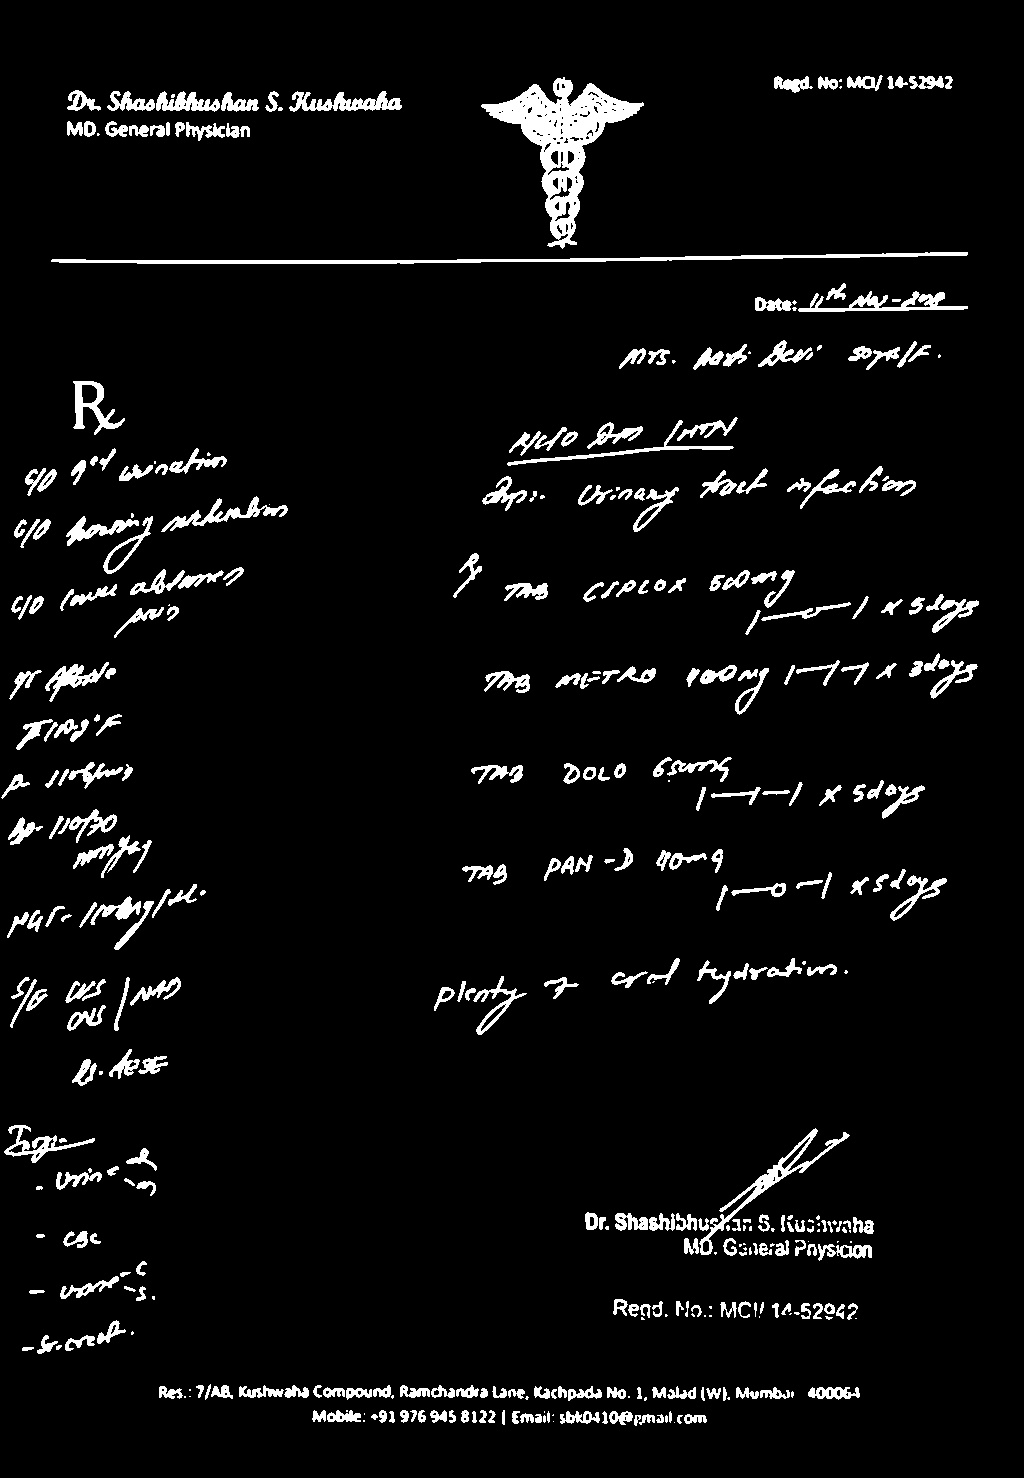 Dr. Shashibhushan S. Kushwaha
MD. General Physician
Regd. No: MCI/ 14-52942
Date: 11th Nov - 2018
Mrs. Devi 50yrs/F.
Rx
C/O urination
C/O burning micturation
C/O lower abdomen
pain
P-
BP- 110/70
mmHg
S/E CVS / NAD
CNS
RS. AEBE
Inv:-
- Urine - R
- M
- CBC
- Urine - C
- S.
- Sr. creat.
DM / HTN
Imp:- Urinary tract infection
Rx TAB CIPLOX 500mg
1—0—1 x 5 days
TAB METRO 400mg 1-1-1 x 3 days
TAB DOLO 650mg
1—1—1 x 5 days
TAB PAN-D 40mg
1—0—1 x 5 days
Plenty of oral hydration.
Dr. Shashibhushan S. Kushwaha
MD. General Physician
Regd. No.: MCI/ 14-52942
Res.: 7/AB, Kushwaha Compound, Ramchandra Lane, Kachpada No. 1, Malad (W), Mumbai 400064
Mobile: +91 976 945 8122 | Email: sbk0410@gmail.com